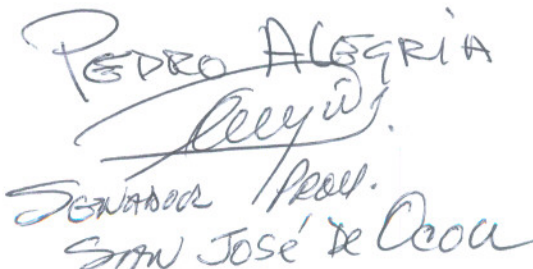 PEDRO ALEGRIA
SENADOR PROV.
SAN JOSÉ DE OCOA